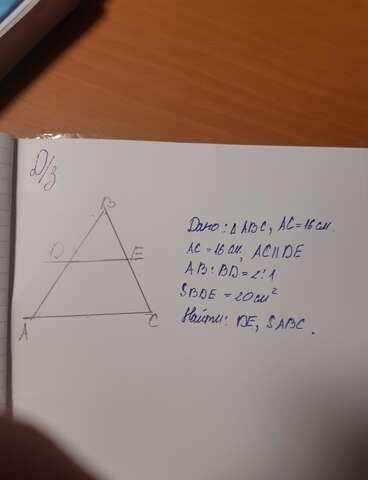 Д/з
B
D E
A C
Дано: △ABC, AC=16см.
AC=16см, AC||DE
AB:BD=2:1
SBDE=20см²
Найти: DE, SABC.